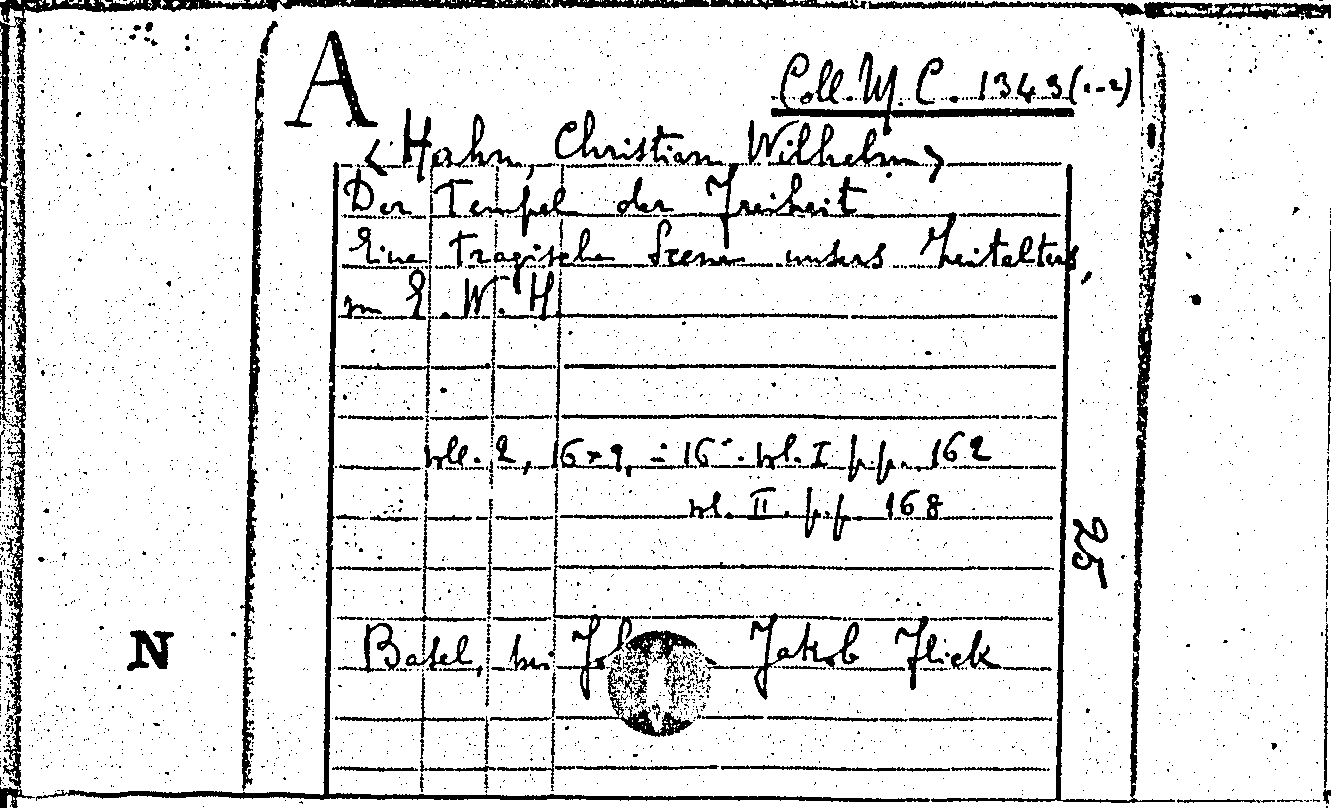 A
Coll. M. C. 1343 (1-2)
<Hahn, Christian Wilhelm>
Der Tempel der Freiheit
Eine tragische Szene unsers Zeitalters,
von C. W. H.
voll. 2, 16×9, - 16°. vol. I pp. 162
vol. II. pp. 168
25
N
Basel, bei Jakob Flick